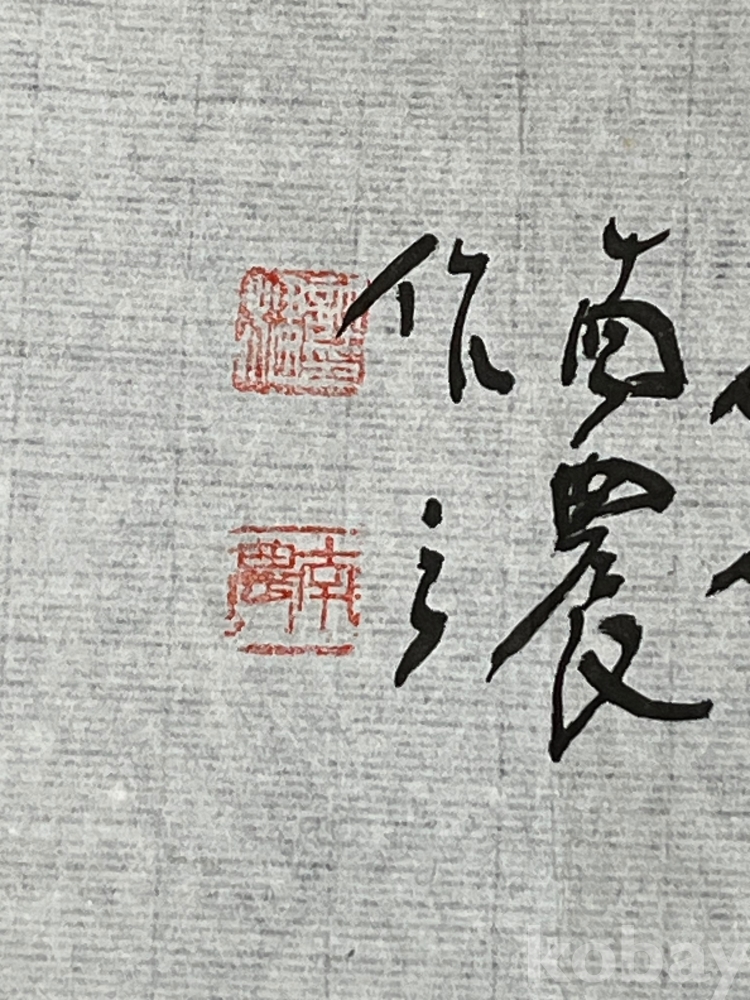 南農
作之
南農
kobay